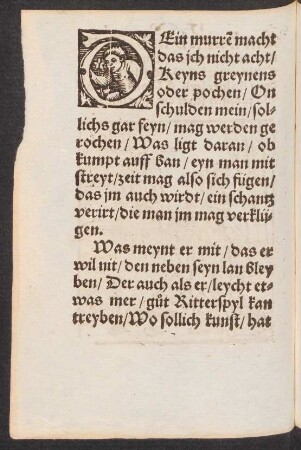 DEin murrẽ macht
das jch nicht acht/
Keyns greynens
oder pochen/On
schulden mein/sol-
lichs gar feyn/mag werden ge
rochen/Was ligt daran/ob
kumpt auff ban/eyn man mit
streyt/zeit mag also sich fügen/
das jm auch wirdt/ein schantz
verirt/die man jm mag verklü
gen.
Was meynt er mit/das er
wil nit/den neben seyn lan bley
ben/Der auch als er/leycht et-
was mer/gůt Ritterspyl kan
treyben/Wo sollich kunst/hat